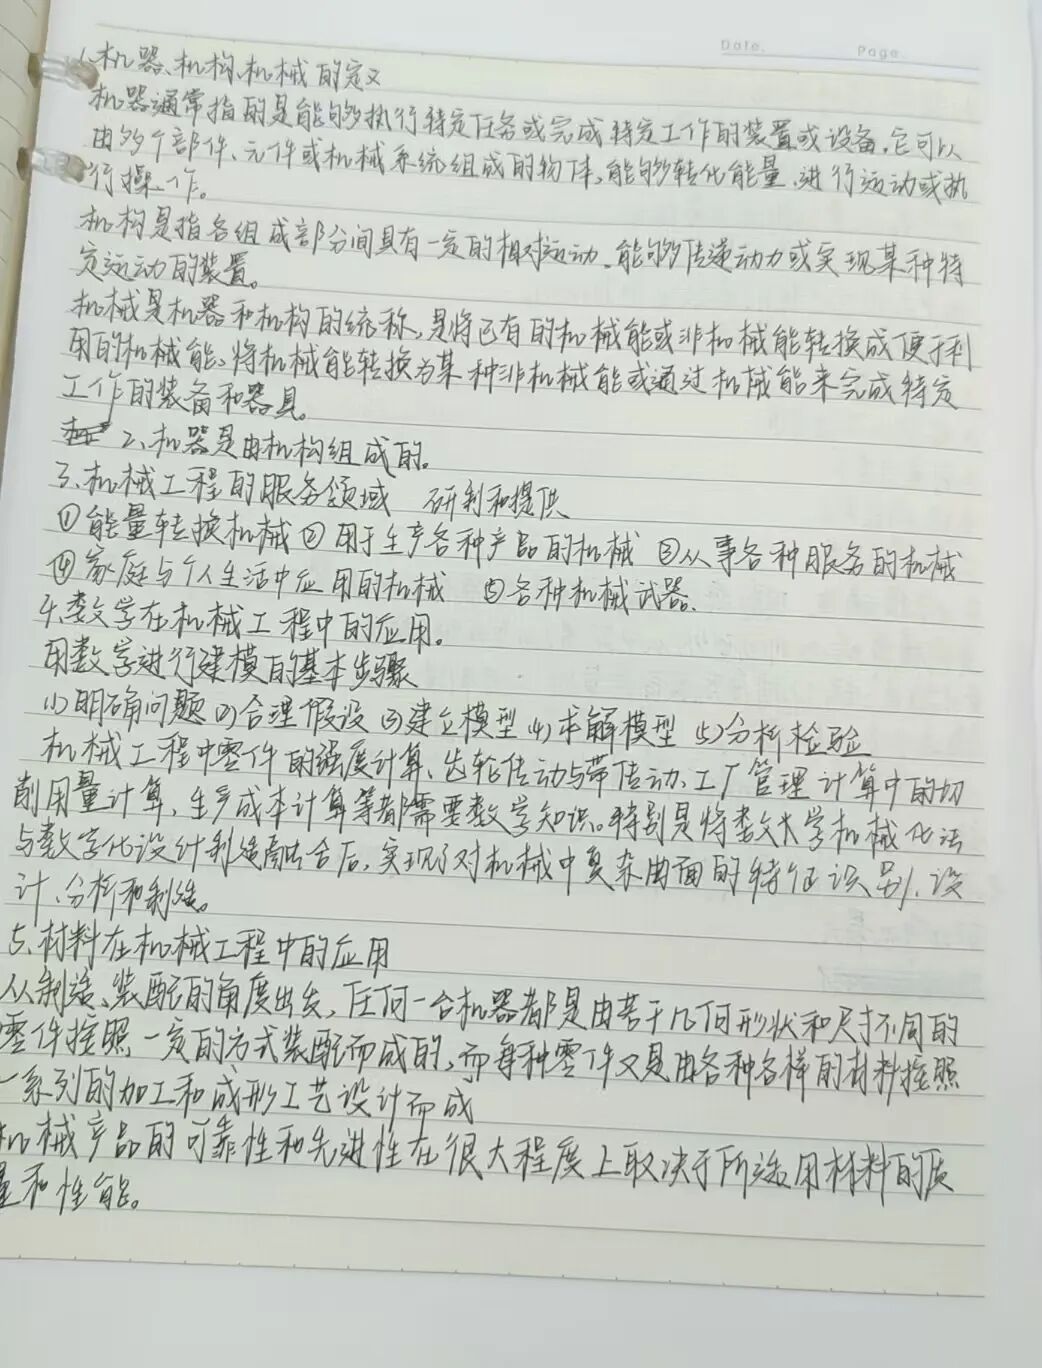 Date. Page.
1、机器、机构、机械的定义
机器通常指的是能够执行特定任务或完成特定工作的装置或设备,它可以
由多个部件、元件或机械系统组成的物体,能够转化能量、进行运动或执
行操作。
机构是指各组成部分间具有一定的相对运动,能够传递动力或实现某种特
定运动的装置。
机械是机器和机构的统称,是将已有的机械能或非机械能转换成便于利
用的机械能,将机械能转换为某种非机械能或通过机械能来完成特定
工作的装备和器具。
2、机器是由机构组成的。
3、机械工程的服务领域 研制和提供
①能量转换机械 ②用于生产各种产品的机械 ③从事各种服务的机械
④家庭与个人生活中应用的机械 ⑤各种机械武器.
4、数学在机械工程中的应用。
用数学进行建模的基本步骤
(1)明确问题 (2)合理假设 (3)建立模型 (4)求解模型 (5)分析检验
机械工程中零件的强度计算、齿轮传动与带传动、工厂管理计算中的切
削用量计算、生产成本计算等都需要数学知识。特别是将数学机械化法
与数字化设计制造融合后,实现了对机械中复杂曲面的特征识别、设
计、分析和制造。
5、材料在机械工程中的应用
从制造、装配的角度出发,任何一台机器都是由若干几何形状和尺寸不同的
零件按照一定的方式装配而成的,而每种零件又是由各种各样的材料按照
一系列的加工和成形工艺设计而成
机械产品的可靠性和先进性在很大程度上取决于所选用材料的质
量和性能。